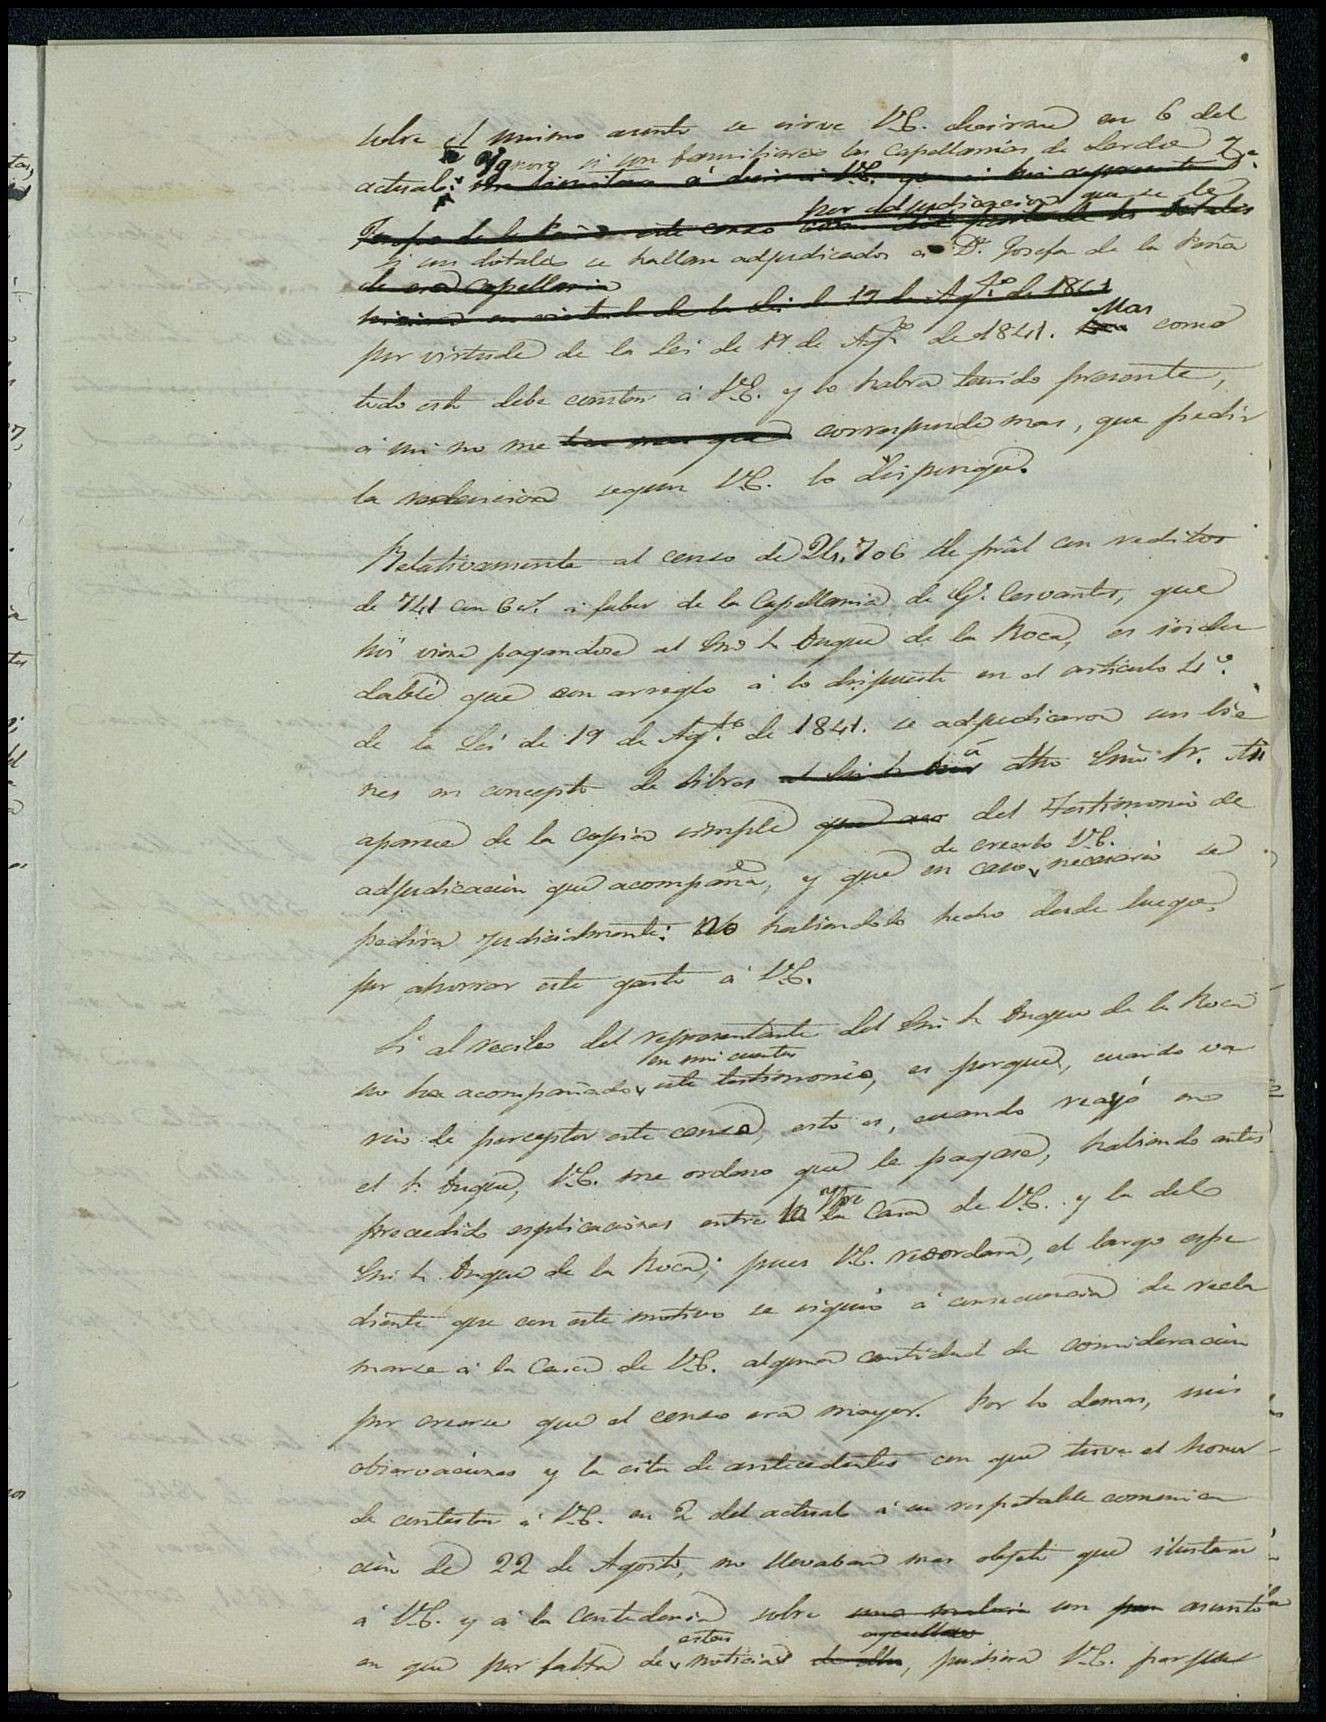 sobre el mismo asunto se sirve V.E. decirme en 6 del
ygnoro si son familiares las capellanias de Lerdo y
actual:
por adjudicacion que se le
Josefa de la Peña este censo
si sus dotales se hallan adjudicados a Dª Josefa de la Peña
de esa Capellania
en virtud de la lei de 19 de Agto de 1841
por virtud de la Lei de 19 de Agto de 1841. Mas como
todo esto debe constar á V.E. y lo habra tenido presente,
á mi no me corresponde mas, que pedir
la redencion segun V.E. lo disponga.
Relativamente al censo de 24.706 de pral con reditos
de 741 con 6 á fabor de la Capellania de Gl. Cervantes, que
hoi viene pagandose al Sor Duque de la Roca, es indu
dable que con arreglo á lo dispuesto en el articulo 4º.
de la Lei de 19 de Agto de 1841. se adjudicaron sus bie
nes en concepto de libres á dho Sor Dr. Asi
aparece de la copia simple del Testimonio de
de creerlo V.E.
adjudicacion que acompaña, y que en caso necesario se
pedira judicialmente: No habiendolo hecho desde luego,
por ahorrar este gasto á V.E.
Si al recibo del representante del Sor Duque de la Roca
en mi cuenta
no ha acompañado este testimonio, es porque, cuando va
rio de perceptor este censo, esto es, cuando recayó en
el Sr Duque, V.E. me ordeno que le pagase, habiendo antes
precedido esplicaciones entre la Casa de V.E. y la del
Sor Duque de la Roca; pues V.E. recordara, el largo espe
diente que con este motivo se siguió á consecuencia de recla
marse á la Casa de V.E. alguna cantidad de consideracion
por creerse que el censo era mayor. Por lo demas, mis
observaciones y la cita de antecedentes con que tuve el honor
de contestar á V.E. en 2 del actual á su respetable comunica
cion de 22 de Agosto, no llevaban mas objeto que ilustrar
á V.E. y á la Contaduria sobre un asunto
estas
en que por falta de noticias, pudiera V.E. perju